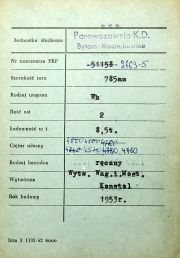 Jednostka służbowa
Parowozownia K.D.
Bytom-Maciejkowice
Nr inwentarza PKP 51158 2763-5
Szerokość toru 785mm
Rodzaj wagonu Wh
Ilość osi 2
Ładowność w t 8,5t.
Ciężar własny 4760
Rodzaj hamulca ręczny
Wytwórnia Wytw. Wag.i.Most.
Konstal
Rok budowy 1953r.